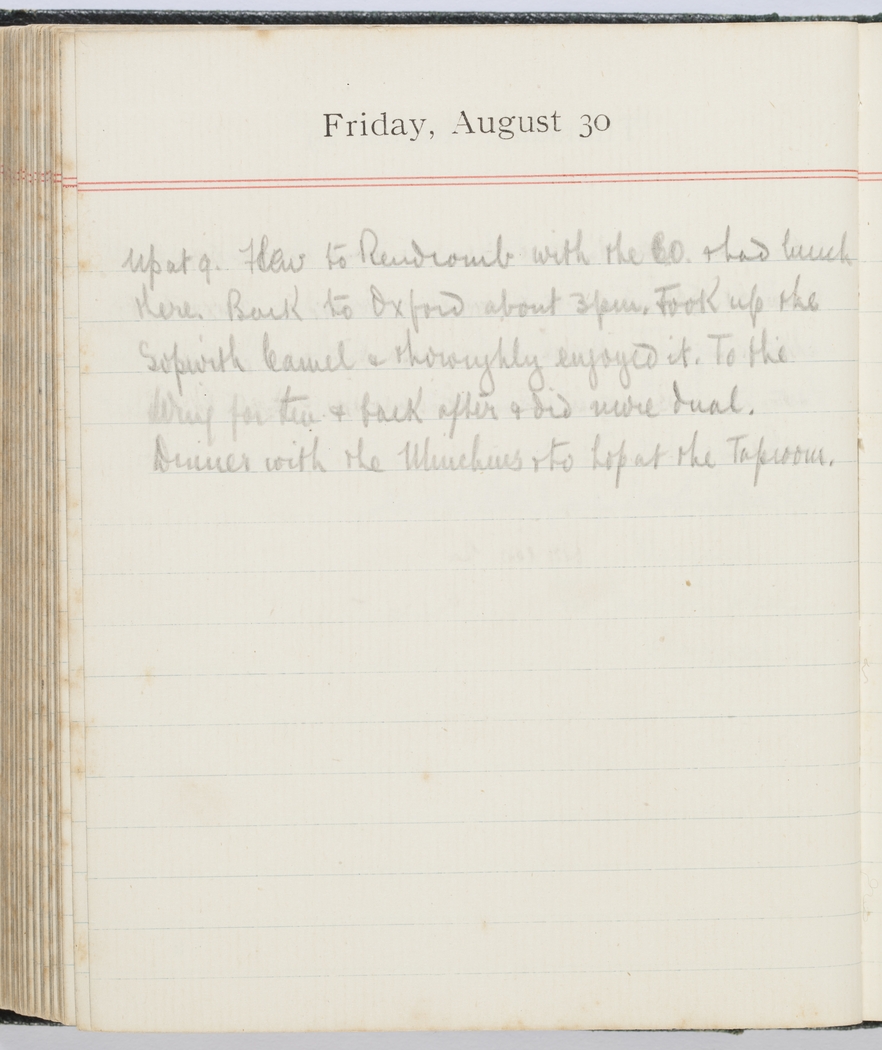 Friday, August 30
Up at 9. Flew to Rendcomb with the CO. & had lunch
there. Back to Oxford about 3pm. Took up the
Sopwith Camel & thoroughly enjoyed it. To the
Wing for tea & back after & did more dual.
Dinner with the Minchins & to hop at the Taproom.